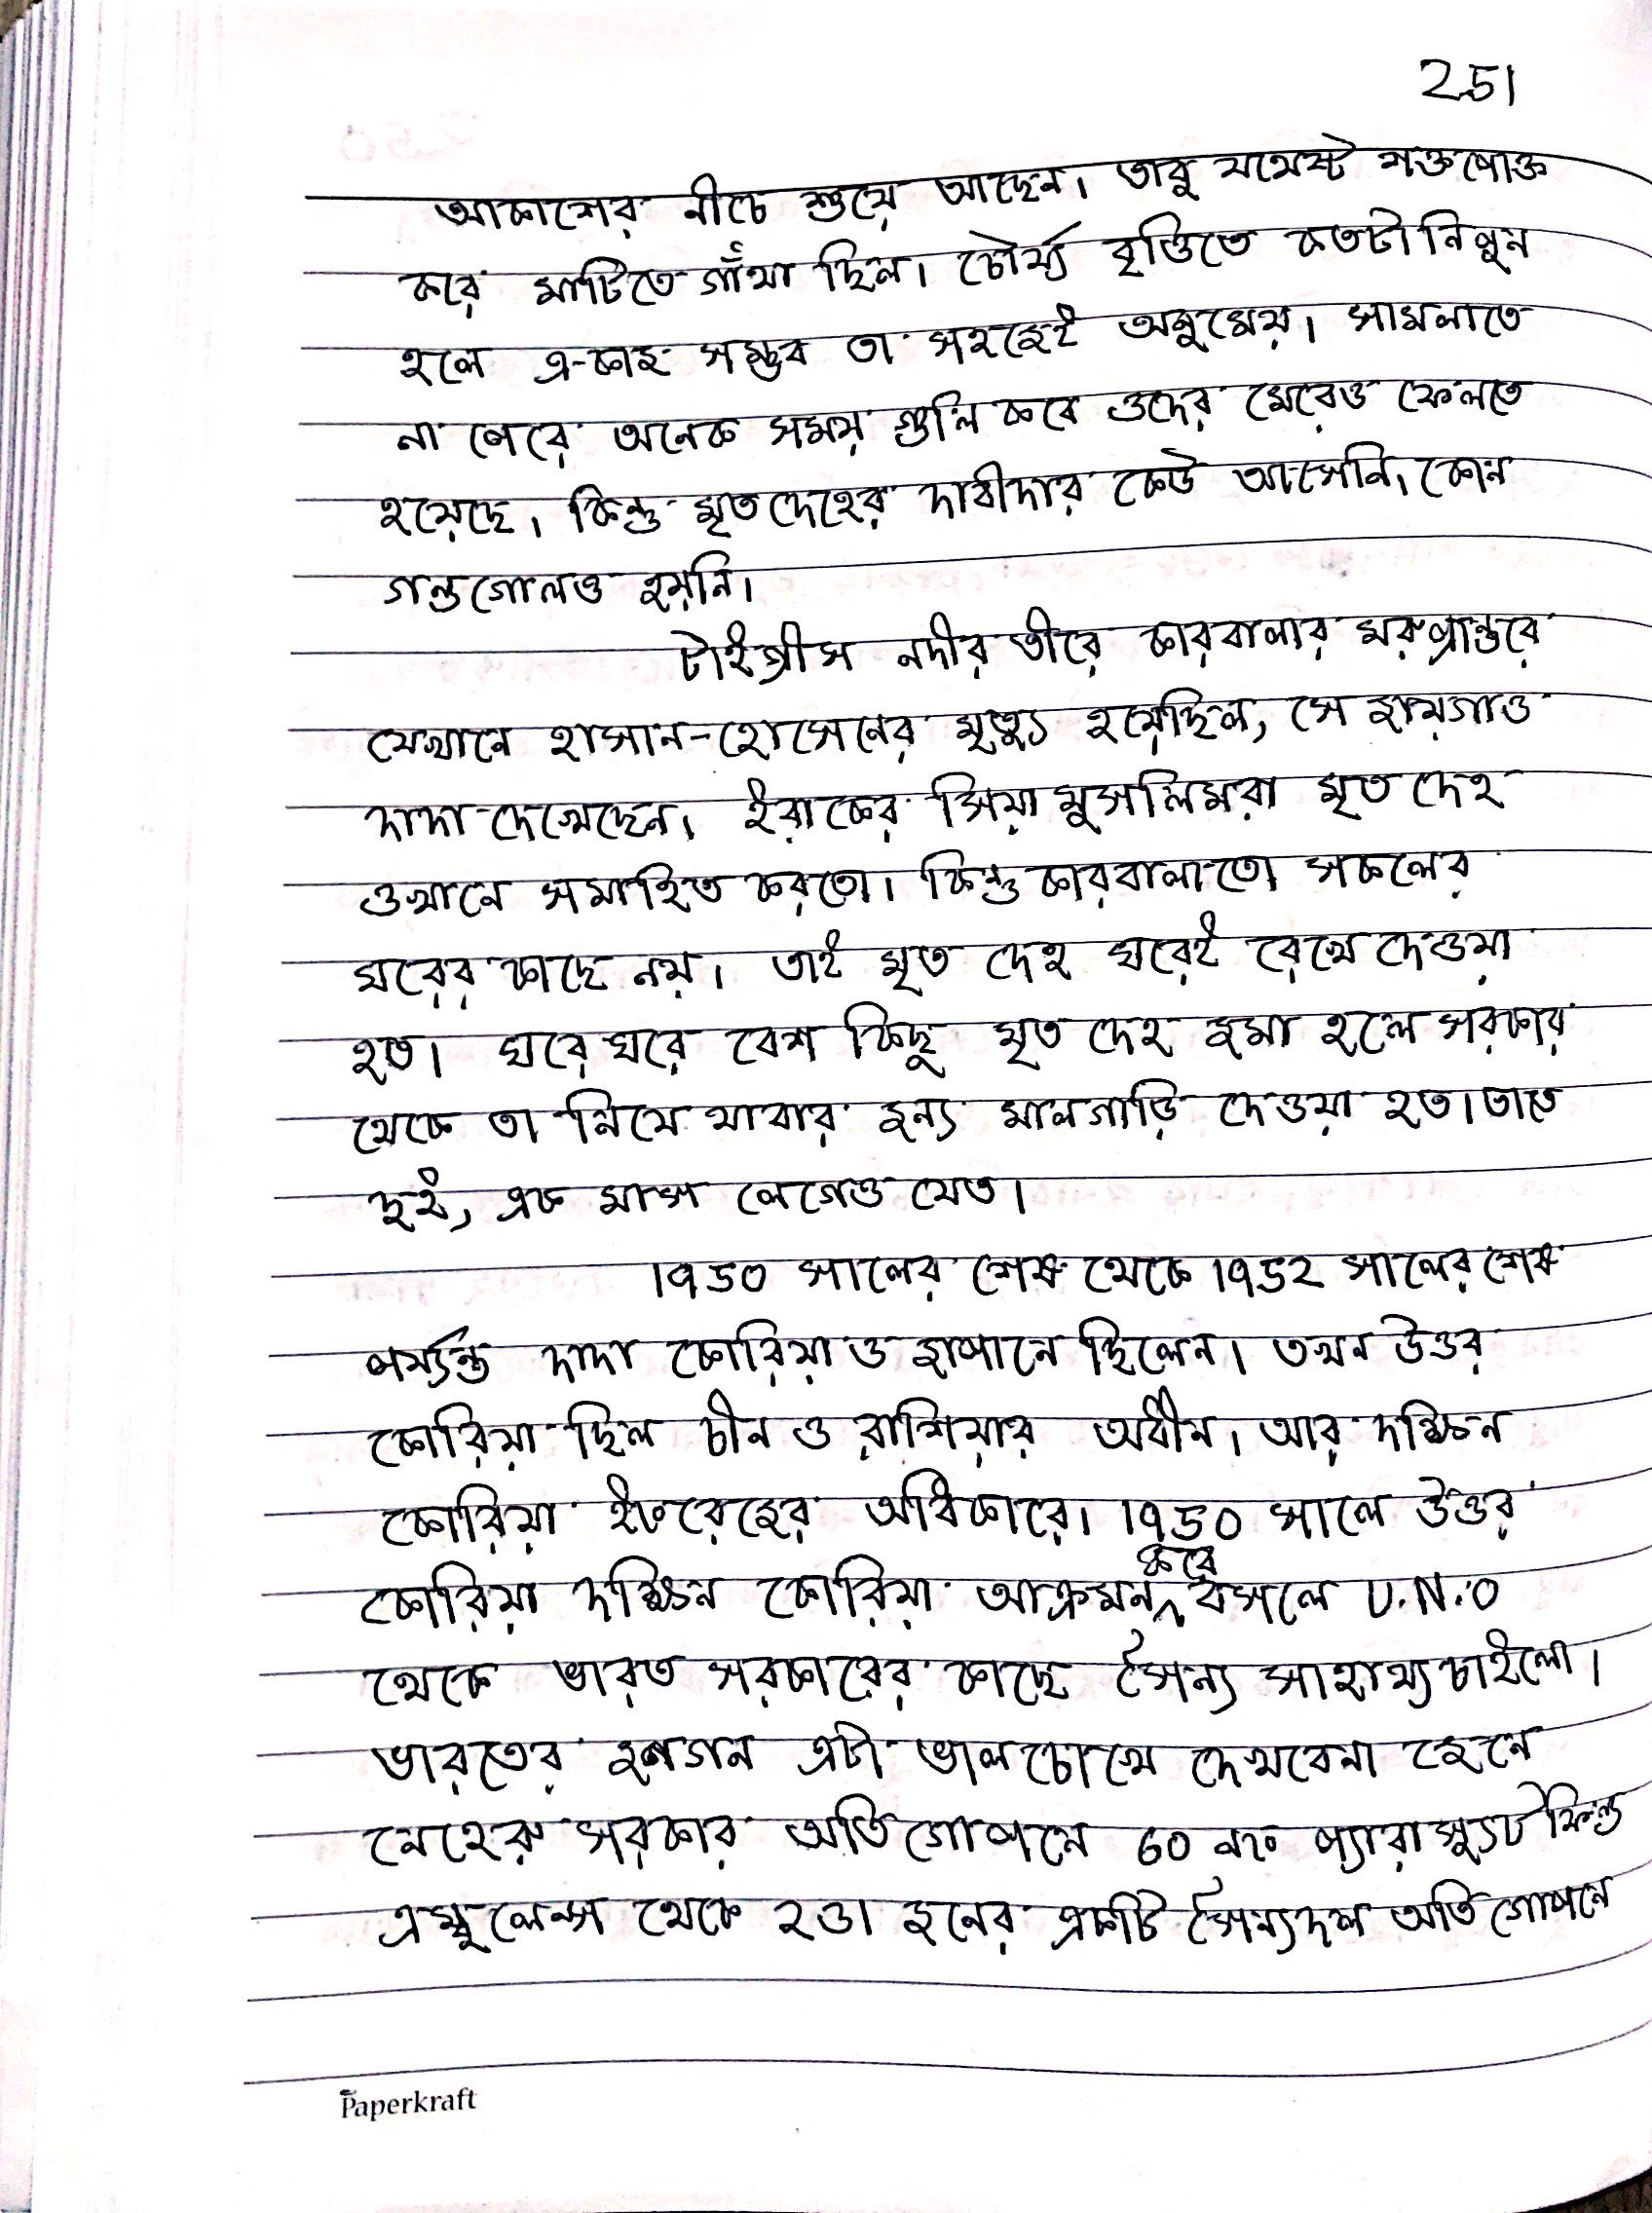 251
আকাশের নীচে শুয়ে আছেন। তাবু যথেষ্ট শক্তপোক্ত
করে মাটিতে গাঁথা ছিল। চৌর্য্য বৃত্তিতে কতটা নিপুন
হলে এ-কাজ সম্ভব তা সহজেই অনুমেয়। সামলাতে
না পেরে অনেক সময় গুলি করে ওদের মেরেও ফেলতে
হয়েছে। কিন্তু মৃতদেহের দাবীদার কেউ আসেনি, কোন
গন্ডগোলও হয়নি।
টাইগ্রীস নদীর তীরে কারবালার মরুপ্রান্তরে
যেখানে হাসান-হোসেনের মৃত্যু হয়েছিল, সে জায়গাও
দাদা দেখেছেন। ইরাকের সিয়া মুসলিমরা মৃত দেহ
ওখানে সমাহিত করতো। কিন্তু কারবালা তো সকলের
ঘরের কাছে নয়। তাই মৃত দেহ ঘরেই রেখে দেওয়া
হত। ঘরে ঘরে বেশ কিছু মৃত দেহ জমা হলে সরকার
থেকে তা নিয়ে যাবার জন্য মালগাড়ি দেওয়া হত। তাতে
দুই, এক মাস লেগেও যেত।
১৯৫০ সালের শেষ থেকে ১৯৫২ সালের শেষ
পর্য্যন্ত দাদা কোরিয়া ও জাপানে ছিলেন। তখন উত্তর
কোরিয়া ছিল চীন ও রাশিয়ার অধীন। আর দক্ষিন
কোরিয়া ইংরেজের অধিকারে। ১৯৫০ সালে উত্তর
কোরিয়া দক্ষিন কোরিয়া আক্রমন করে বসলে U.N.O
থেকে ভারত সরকারের কাছে সৈন্য সাহায্য চাইলো।
ভারতের জনগন এটা ভাল চোখে দেখবেনা জেনে
নেহেরু সরকার অতি গোপনে 60 নং প্যারাস্যুট ফিল্ড
এম্বুলেন্স থেকে ২৩১ জনের একটি সৈন্যদল অতি গোপনে
Paperkraft